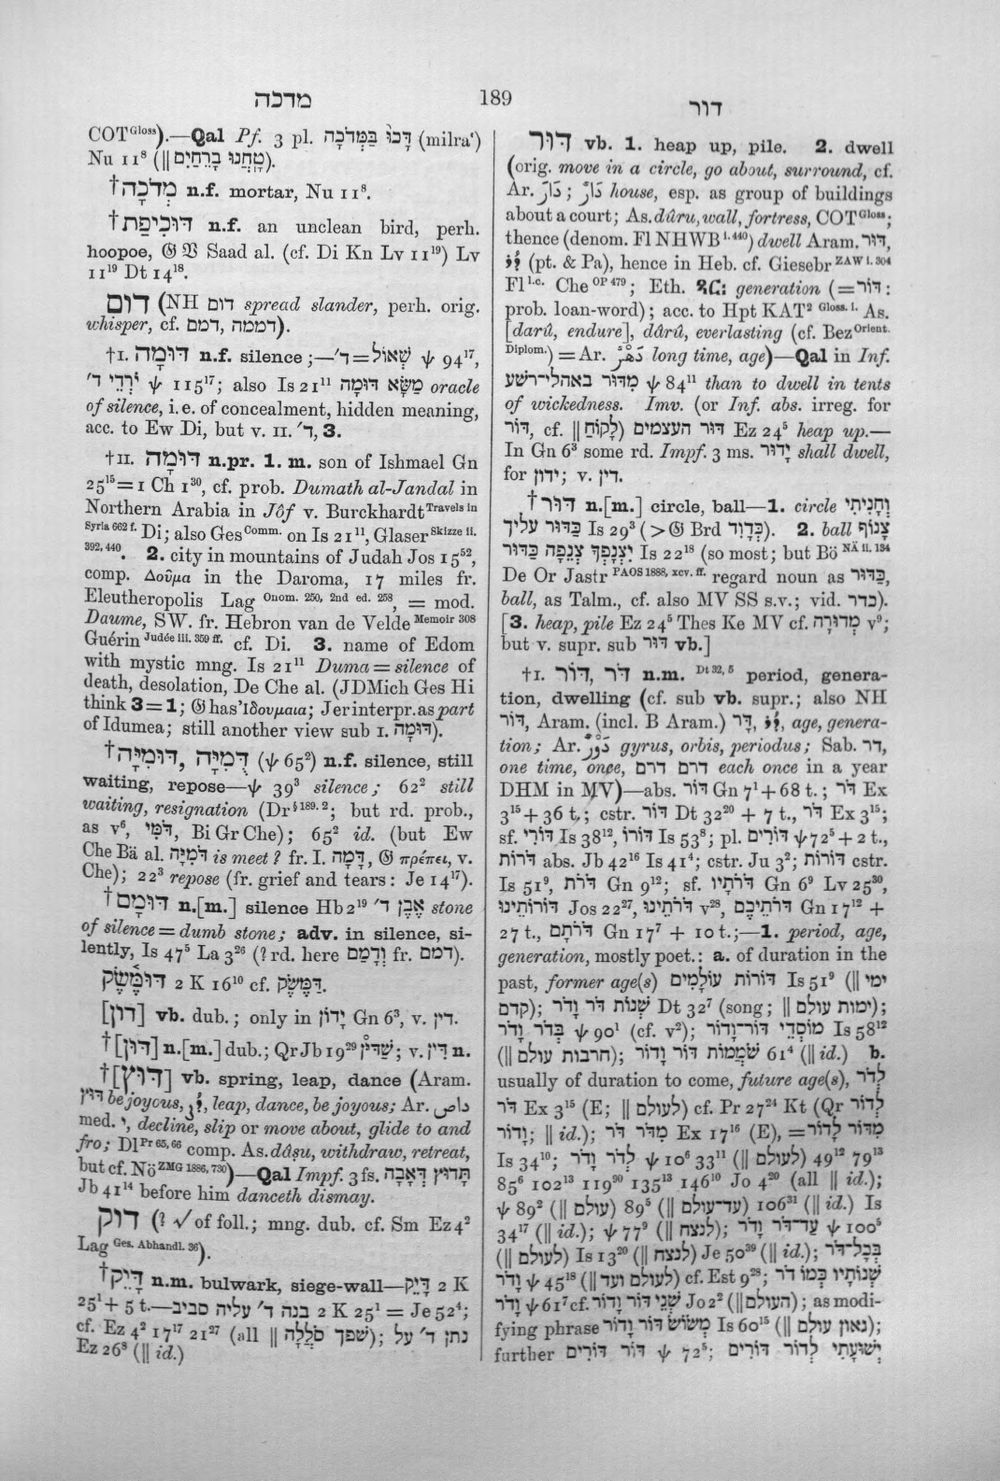 מדכה
189
דור
COT Gloss).—Qal Pf. 3 pl. דָּכוּ בַּמְּדֹכָה (milraʻ)
Nu 11⁸ (‖ טָחֲנוּ בָרֵחַיִם).
†מְדֹכָה n.f. mortar, Nu 11⁸.
†דּוּכִיפַת n.f. an unclean bird, perh.
hoopoe, 𝔊 𝔙 Saad al. (cf. Di Kn Lv 11¹⁹) Lv
11¹⁹ Dt 14¹⁸.
דום (NH דום spread slander, perh. orig.
whisper, cf. דמם, דממה).
†I. דּוּמָה n.f. silence;—ד׳=שְׁאוֹל ψ 94¹⁷,
יֹרְדֵי ד׳ ψ 115¹⁷; also Is 21¹¹ מַשָּׂא דּוּמָה oracle
of silence, i.e. of concealment, hidden meaning,
acc. to Ew Di, but v. II. ד׳, 3.
†II. דּוּמָה n.pr. 1. m. son of Ishmael Gn
25¹⁵=1 Ch 1³⁰, cf. prob. Dumath al-Jandal in
Northern Arabia in Jôf v. Burckhardt Travels in
Syria 662 f. Di; also Ges Comm. on Is 21¹¹, Glaser Skizze ii.
392, 440. 2. city in mountains of Judah Jos 15⁵²,
comp. Δοῦμα in the Daroma, 17 miles fr.
Eleutheropolis Lag Onom. 250, 2nd ed. 258, = mod.
Daume, SW. fr. Hebron van de Velde Memoir 308
Guérin Judée iii. 359 ff. cf. Di. 3. name of Edom
with mystic mng. Is 21¹¹ Duma=silence of
death, desolation, De Che al. (JDMich Ges Hi
think 3=1; 𝔊 has Ἰδουμαια; Jer interpr. as part
of Idumea; still another view sub I. דּוּמָה).
†דֻּמִיָּה, דּוּמִיָּה (ψ 65²) n.f. silence, still
waiting, repose—ψ 39³ silence; 62² still
waiting, resignation (Dr § 189. 2; but rd. prob.,
as v⁶, דֹּמִּי, Bi Gr Che); 65² id. (but Ew
Che Bä al. דֹּמִיָּה is meet? fr. I. דָּמָה, 𝔊 πρέπει, v.
Che); 22³ repose (fr. grief and tears: Je 14¹⁷).
†דּוּמָם n.[m.] silence Hb 2¹⁹ אֶבֶן ד׳ stone
of silence=dumb stone; adv. in silence, si-
lently, Is 47⁵ La 3²⁶ (? rd. here וְדָמַם fr. דמם).
דּוּמֶּשֶׂק 2 K 16¹⁰ cf. דַּמֶּשֶׂק.
[דּוּן] vb. dub.; only in יָדוֹן Gn 6³, v. דין.
†[דּוּן] n.[m.] dub.; Qr Jb 19²⁹ שַׁדּוּן; v. דִּין n.
†[דּוּץ] vb. spring, leap, dance (Aram.
דּוּץ be joyous, ܕܳܨ, leap, dance, be joyous; Ar. داص
med. י, decline, slip or move about, glide to and
fro; Dl Pr 65, 66 comp. As. dâṣu, withdraw, retreat,
but cf. Nö ZMG 1886, 730)—Qal Impf. 3 fs. תָּדוּץ דְּאָבָה
Jb 41¹⁴ before him danceth dismay.
דוק (? √ of foll.; mng. dub. cf. Sm Ez 4²
Lag Ges. Abhandl. 36).
†דָּיֵק n.m. bulwark, siege-wall—דָּיֵק 2 K
25¹+ 5 t.—בנה ד׳ עליה סביב 2 K 25¹ = Je 52⁴;
cf. Ez 4² 17¹⁷ 21²⁷ (all ‖ שפך סֹלֲלָה); נתן ד׳ על
Ez 26⁸ (‖ id.)
דּוּר vb. 1. heap up, pile. 2. dwell
(orig. move in a circle, go about, surround, cf.
Ar. دَارَ; دَارٌ house, esp. as group of buildings
about a court; As. dûru, wall, fortress, COT Gloss;
thence (denom. Fl NHWB i. 440) dwell Aram. דּוּר,
ܕܳܪ (pt. & Pa), hence in Heb. cf. Giesebr ZAW i. 304
Fl l.c. Che OP 479; Eth. generation (=דּוֹר:
prob. loan-word); acc. to Hpt KAT² Gloss. i. As.
[darû, endure], dârû, everlasting (cf. Bez Orient.
Diplom.)=Ar. دَهْرٌ long time, age)—Qal in Inf.
מִדּוּר באהלי־רשע ψ 84¹¹ than to dwell in tents
of wickedness. Imv. (or Inf. abs. irreg. for
דּוֹר, cf. ‖ לָקוֹחַ) דּוּר העצמים Ez 24⁵ heap up.—
In Gn 6³ some rd. Impf. 3 ms. יָדוּר shall dwell,
for ידון; v. דין.
†דּוּר n.[m.] circle, ball—1. circle וְחָנִיתִי
כַדּוּר עליך Is 29³ (>𝔊 Brd כְּדָוִד). 2. ball צָנוֹף
יִצְנָפְךָ צְנֵפָה כַּדּוּר Is 22¹⁸ (so most; but Bö NÄ ii. 134
De Or Jastr PAOS 1888, xcv. ff. regard noun as כַּדּוּר,
ball, as Talm., cf. also MV SS s.v.; vid. כדר).
[3. heap, pile Ez 24⁵ Thes Ke MV cf. מְדוּרָה v⁹;
but v. supr. sub דּוּר vb.]
†I. דּוֹר, דֹּר n.m. Dt 32, 5 period, genera-
tion, dwelling (cf. sub vb. supr.; also NH
דּוֹר, Aram. (incl. B Aram.) דָּר, ܕܳܪ, age, genera-
tion; Ar. دَوْرٌ gyrus, orbis, periodus; Sab. דר,
one time, once, דרם דרם each once in a year
DHM in MV)—abs. דּוֹר Gn 7¹+68 t.; דֹּר Ex
3¹⁵+36 t.; cstr. דּוֹר Dt 32²⁰ + 7 t., דֹּר Ex 3¹⁵;
sf. דּוֹרִי Is 38¹², דּוֹרוֹ Is 53⁸; pl. דּוֹרִים ψ 72⁵+2 t.,
דֹּרוֹת abs. Jb 42¹⁶ Is 41⁴; cstr. Ju 3²; דּוֹרוֹת cstr.
Is 51⁹, דֹּרֹת Gn 9¹²; sf. דֹּרֹתָיו Gn 6⁹ Lv 25³⁰,
דּוֹרוֹתֵינוּ Jos 22²⁷, דֹּרֹתֵינוּ v²⁸, דֹּרֹתֵיכֶם Gn 17¹² +
27 t., דֹּרֹתָם Gn 17⁷ + 10 t.;—1. period, age,
generation, mostly poet.: a. of duration in the
past, former age(s) דּוֹרוֹת עוֹלָמִים Is 51⁹ (‖ ימי
קדם); שְׁנוֹת דֹּר וָדֹר Dt 32⁷ (song; ‖ ימות עולם);
בְּדֹר וָדֹר ψ 90¹ (cf. v²); מוֹסְדֵי דוֹר־וָדוֹר Is 58¹²
(‖ חרבות עולם); שֹׁמֲמוֹת דּוֹר וָדוֹר 61⁴ (‖ id.) b.
usually of duration to come, future age(s), לְדֹר
דֹּר Ex 3¹⁵ (E; ‖ לעולם) cf. Pr 27²⁴ Kt (Qr לְדוֹר
וָדוֹר; ‖ id.); מִדֹּר דֹּר Ex 17¹⁶ (E), =מִדּוֹר לָדוֹר
Is 34¹⁰; לְדֹר וָדֹר ψ 10⁶ 33¹¹ (‖ לעולם) 49¹² 79¹³
85⁶ 102¹³ 119⁹⁰ 135¹³ 146¹⁰ Jo 4²⁰ (all ‖ id.);
ψ 89² (‖ עולם) 89⁵ (‖ עד־עולם) 106³¹ (‖ id.) Is
34¹⁷ (‖ id.); ψ 77⁹ (‖ לנצח); עַד־דֹּר וָדֹר ψ 100⁵
(‖ לעולם) Is 13²⁰ (‖ לנצח) Je 50³⁹ (‖ id.); בְּכָל־דֹּר
וָדֹר ψ 45¹⁸ (‖ לעולם ועד) cf. Est 9²⁸; שְׁנוֹתָיו כְּמוֹ דֹר
וָדֹר ψ 61⁷ cf. שְׁנֵי דּוֹר וָדוֹר Jo 2² (‖ העולם); as modi-
fying phrase מְשׂוֹשׂ דּוֹר וָדוֹר Is 60¹⁵ (‖ גאון עולם);
further דּוֹר דּוֹרִים ψ 72⁵; יְשׁוּעָתִי לְדוֹר דּוֹרִים